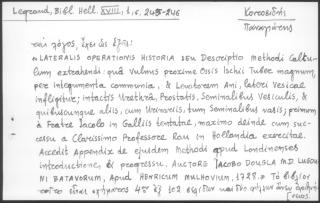 Legrand, Bibl. Hell. XVIII, 1, σ. 245-246
Κονιανδης
Παναγιώτης
λόγος, ἔχει ὡς ἑξῆς:
"LATERALIS OPERATIONIS HISTORIA seu Descriptio methodi Calcu-
lum extrahendi: quâ vulnus proxime Ossis Ischii Tuber magnum,
per Integumenta communia, & Levatorem Ani, lateri Vesicae
infligitur; intactis Urethra, Prostatis, Seminalibus Vesiculis, &
quibuscunque aliis, cum Urinariis, tum Seminalibus vasis; primum
à Fratre Jacobo in Galliis tentatae, maximo deinde cum suc-
cessu a Clarissimo Professore Rau in Hollandia exercitae.
Accedit Appendix de ejusdem Methodi apud Londinenses
introductione, & progressu, AUCTORE JACOBO DOUGLA M.D. LUGDU-
NI BATAVORUM, Apud HENRICUM MULHOVIUM, 1728.» Τὸ βιβλίον
τοῦτο εἶναι σχήματος 4ου ἐξ 102 σελίδων καὶ